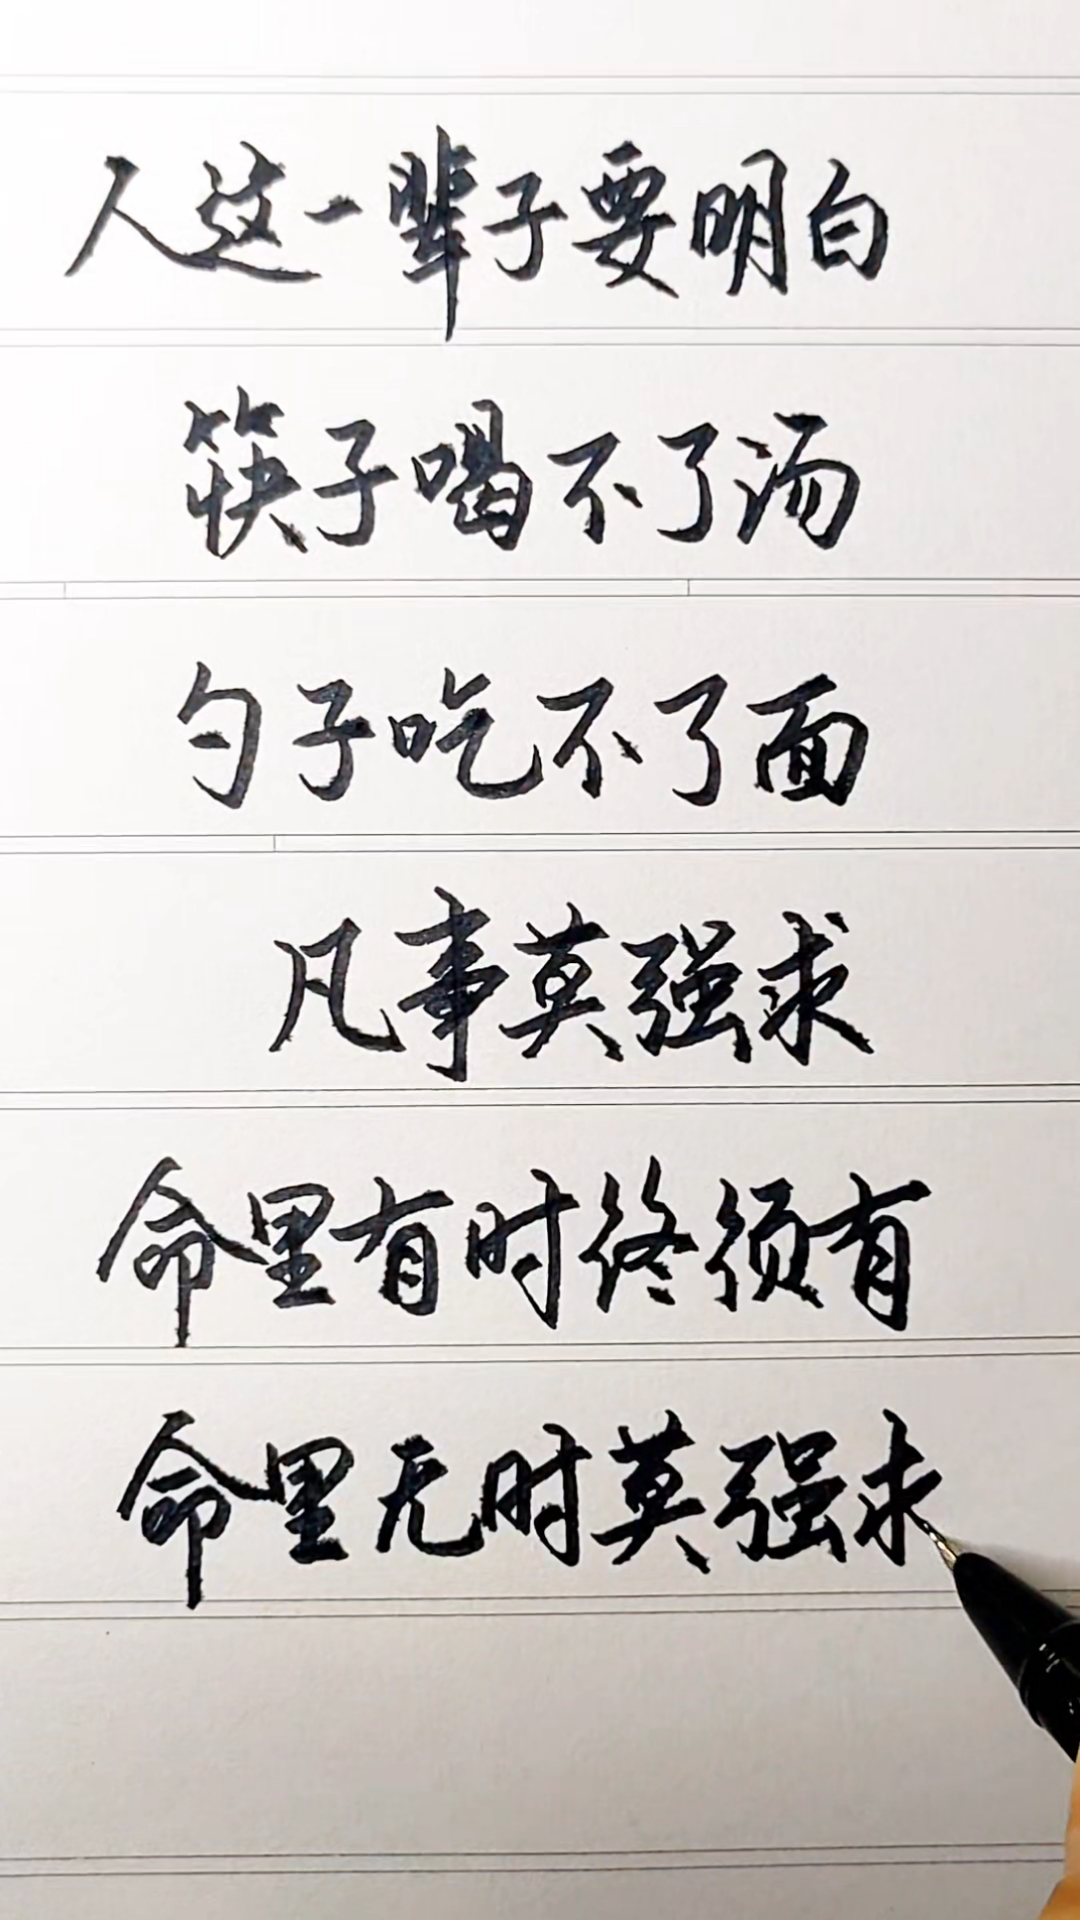 人这一辈子要明白
筷子喝不了汤
勺子吃不了面
凡事莫强求
命里有时终须有
命里无时莫强求